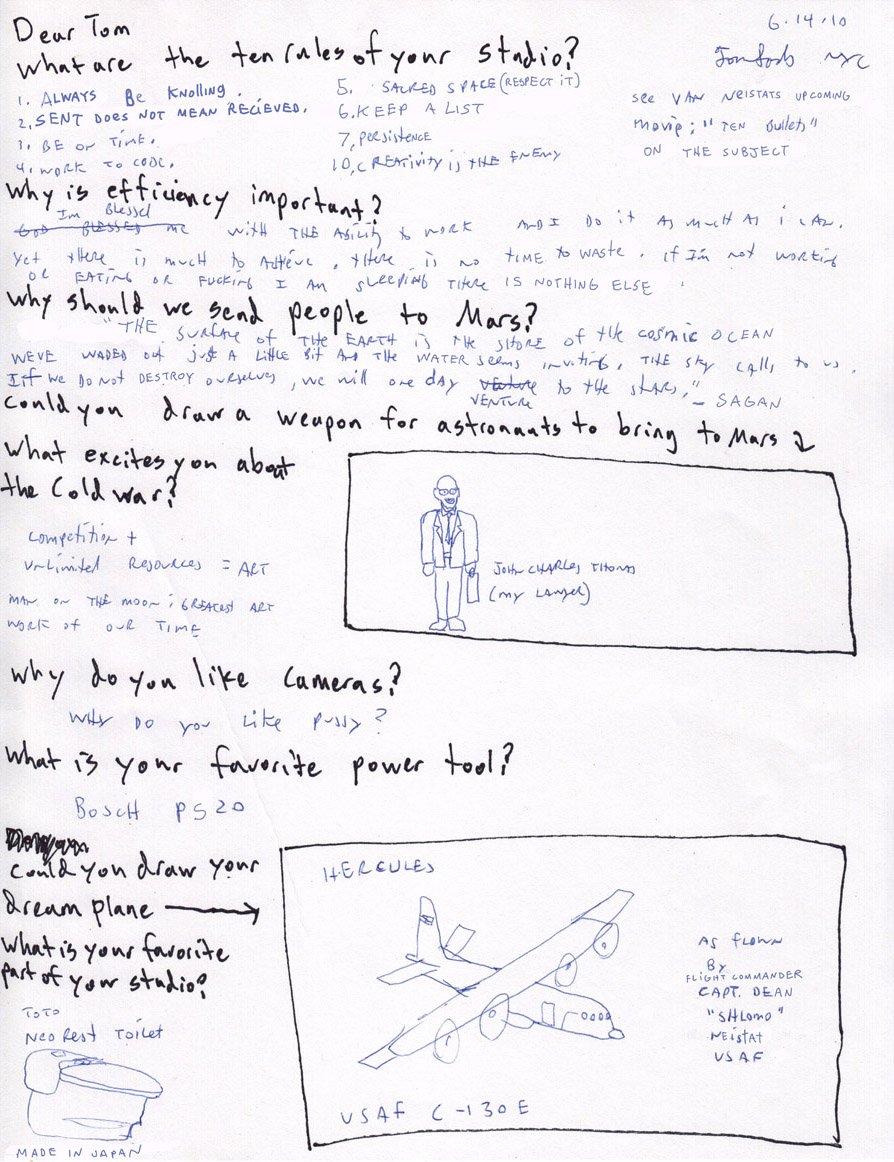 Dear Tom
6.14.10
What are the ten rules of your studio?
Tom Sachs NYC
1. ALWAYS Be KNOLLING.
2. SENT DOES NOT MEAN RECIEVED.
3. BE ON TIME.
4. WORK TO CODE.
5. SACRED SPACE (RESPECT IT)
6. KEEP A LIST
7. persistence
10. CREATivity is THE ENEMY
see VAN NEISTATS UPCOMING
movie; "TEN Bullets"
ON THE SUBJECT
Why is efficiency important?
Im Blessed
GOD BLESSED me with THE Ability to work AND I DO it AS MUCH AS i CAN.
Yet there is much to Achieve. there is no TIME TO WASTE. if I'm not working
OR EATING OR FUCKING I AM SLEEPING THERE IS NOTHING ELSE.
Why should we send people to Mars?
"THE surface of THE EARTH is THE SHORE of the cosmic OCEAN
WEVE WADED out just A little Bit AND THE WATER seems inviting. THE sky CALLS to us.
Iif we DO NOT DESTROY ourselves, we will one DAY venture to the stars."
VENTURE
- SAGAN
Could you draw a weapon for astronauts to bring to Mars
What excites you about
the Cold war?
competition +
UNLIMITED RESOURCES = ART
MAN ON THE MOON: GREATEST ART
WORK OF OUR TIME
JOHN CHARLES THOMAS
(my LAWYER)
Why do you like Cameras?
WHY DO you Like pussy?
What is your favorite power tool?
BOSCH PS20
Could you draw your
dream plane
What is your favorite
part of your studio?
TOTO
NEO REST TOILET
MADE IN JAPAN
HERCULES
AS FLOWN
By
FLIGHT COMMANDER
CAPT. DEAN
"SHLOMO"
NEISTAT
USAF
USAF C-130E